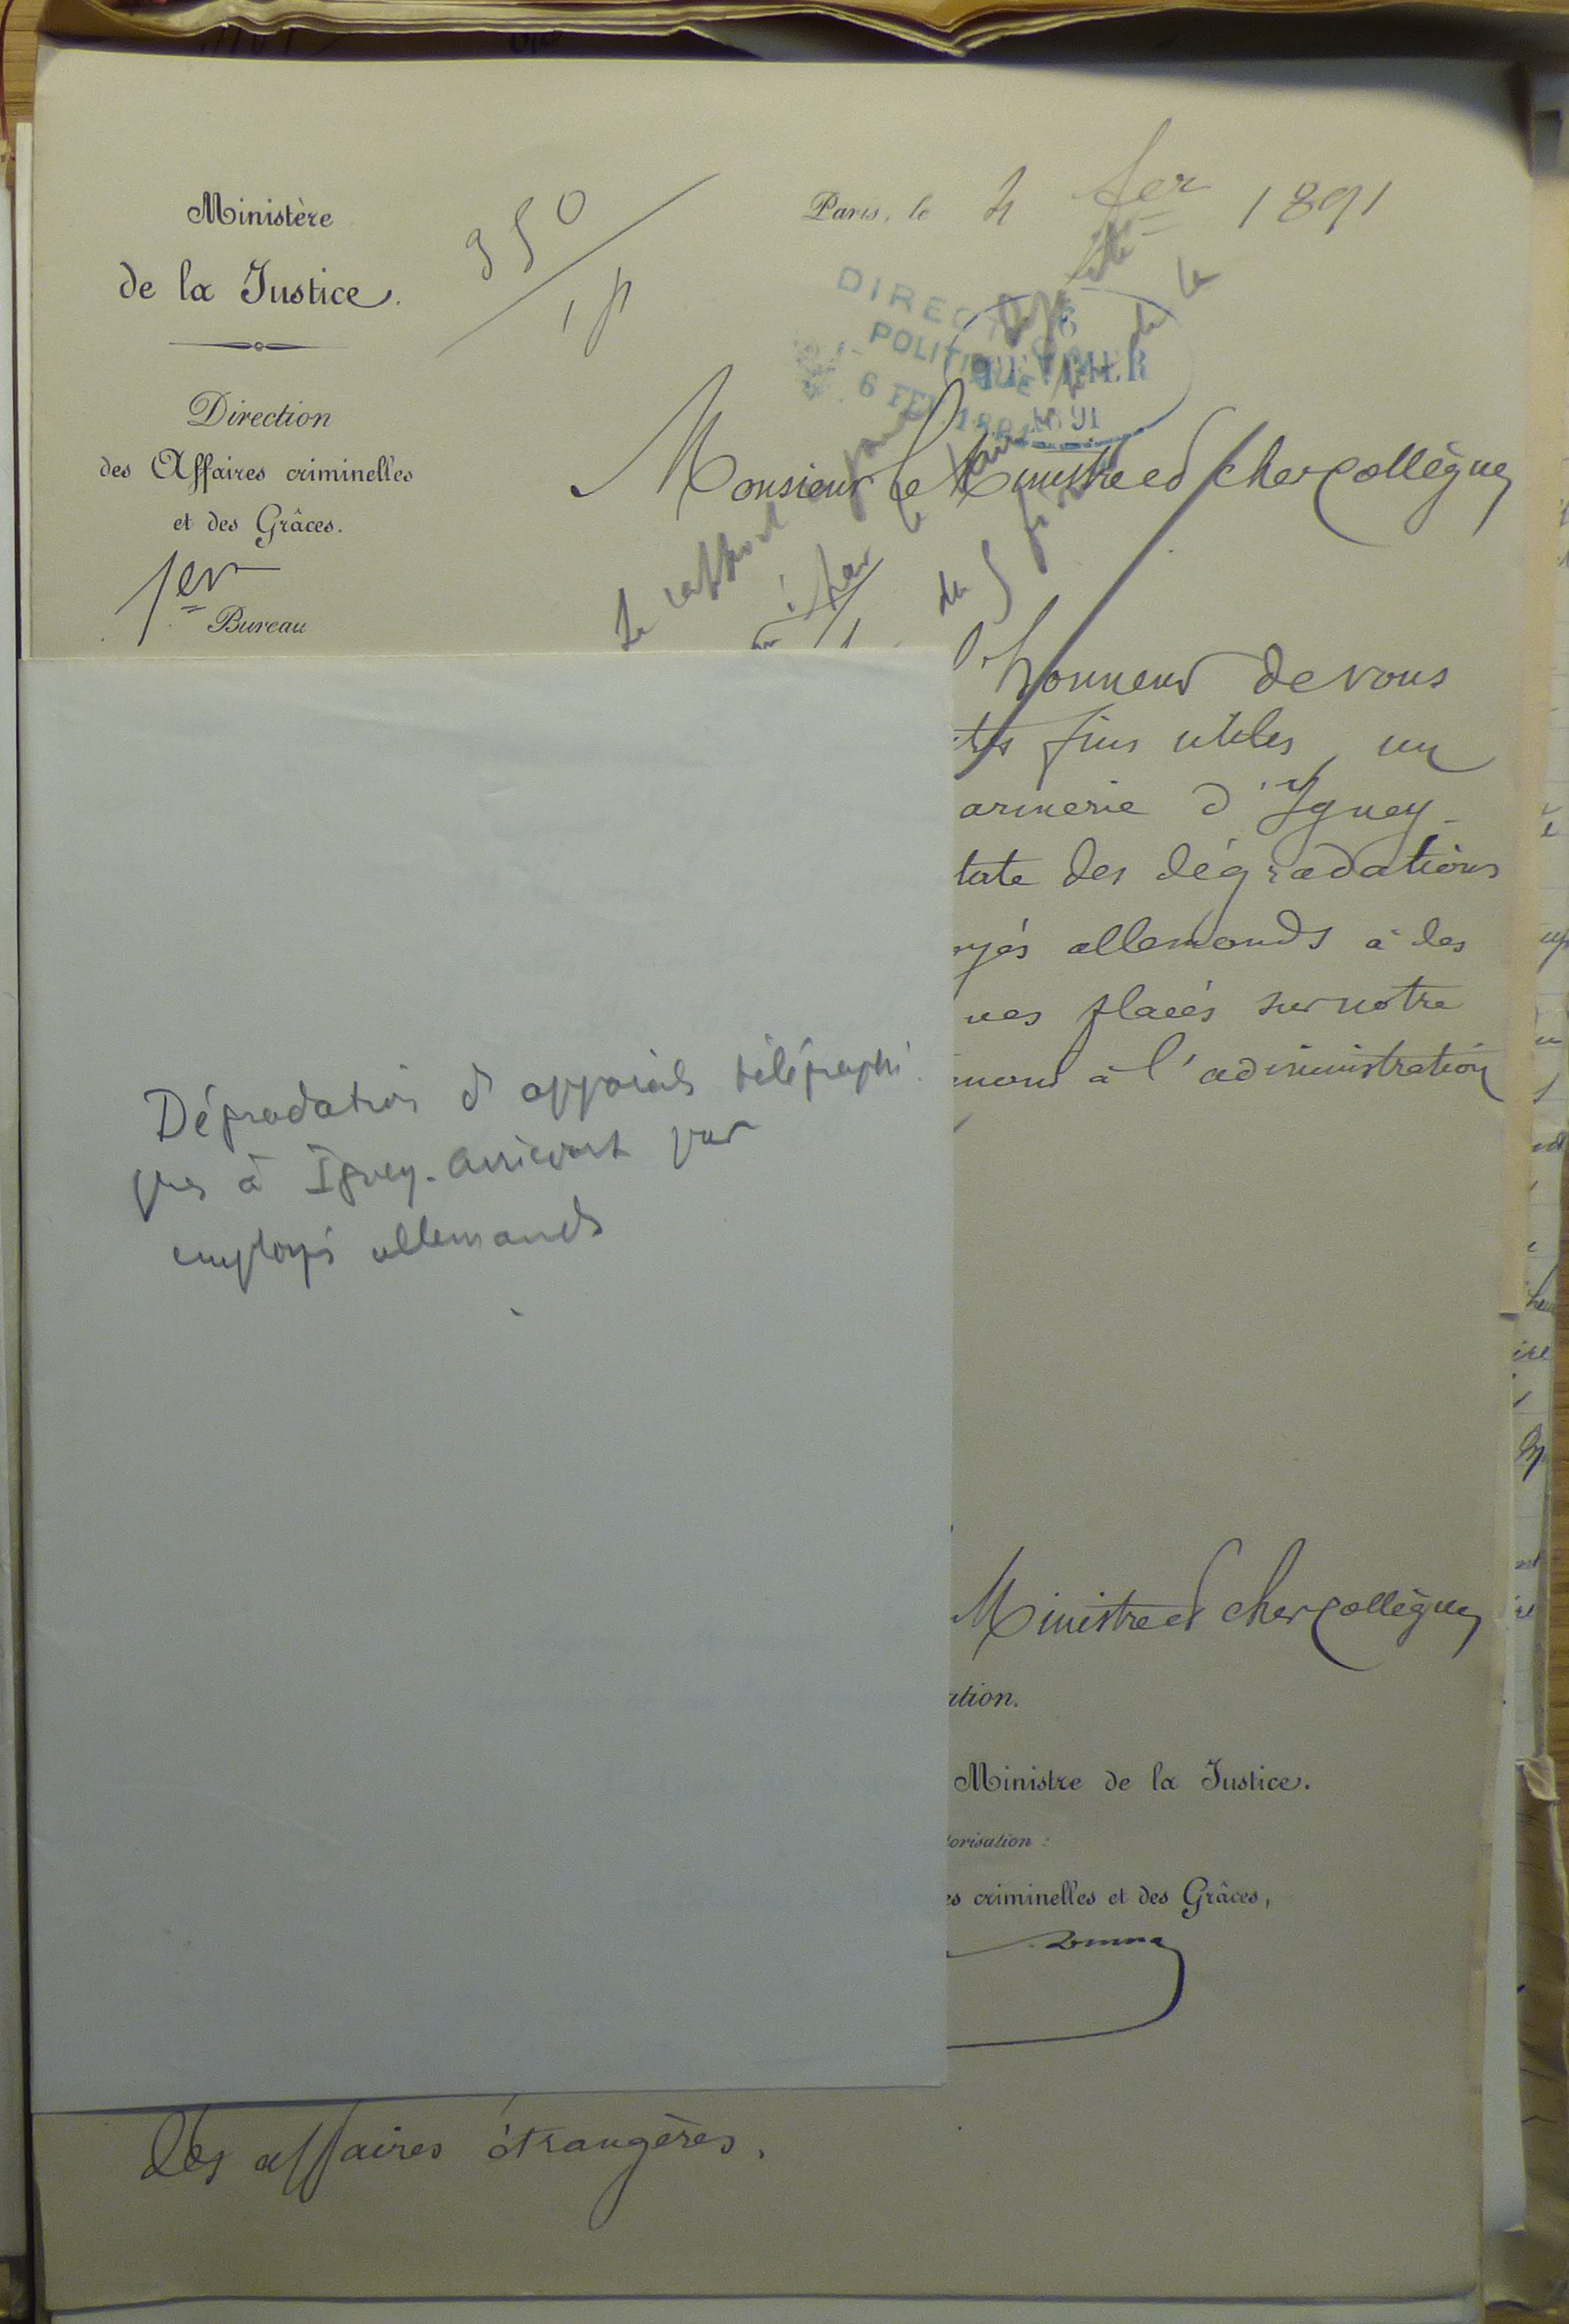 Ministère
de la Justice.
Direction
des Affaires criminelles
et des Grâces.
1er
Bureau
350
1 p
Paris, le 4 fer 1891
DIRECTION
POLITIQUE
6 FEV 1891
6
FEVRIER
91
Monsieur le Ministre et cher collègue
Le rapport
l'honneur de vous
fins utiles, un
armerie d'Igney-
tate des dégradations
oyés allemands à des
ues placés sur notre
à l'administration
Dégradation d'appareils télégraphi
ques à Igney-Avricourt par
employés allemands
Ministre et cher collègue,
ation.
Ministre de la Justice.
torisation :
es criminelles et des Grâces,
des affaires étrangères.